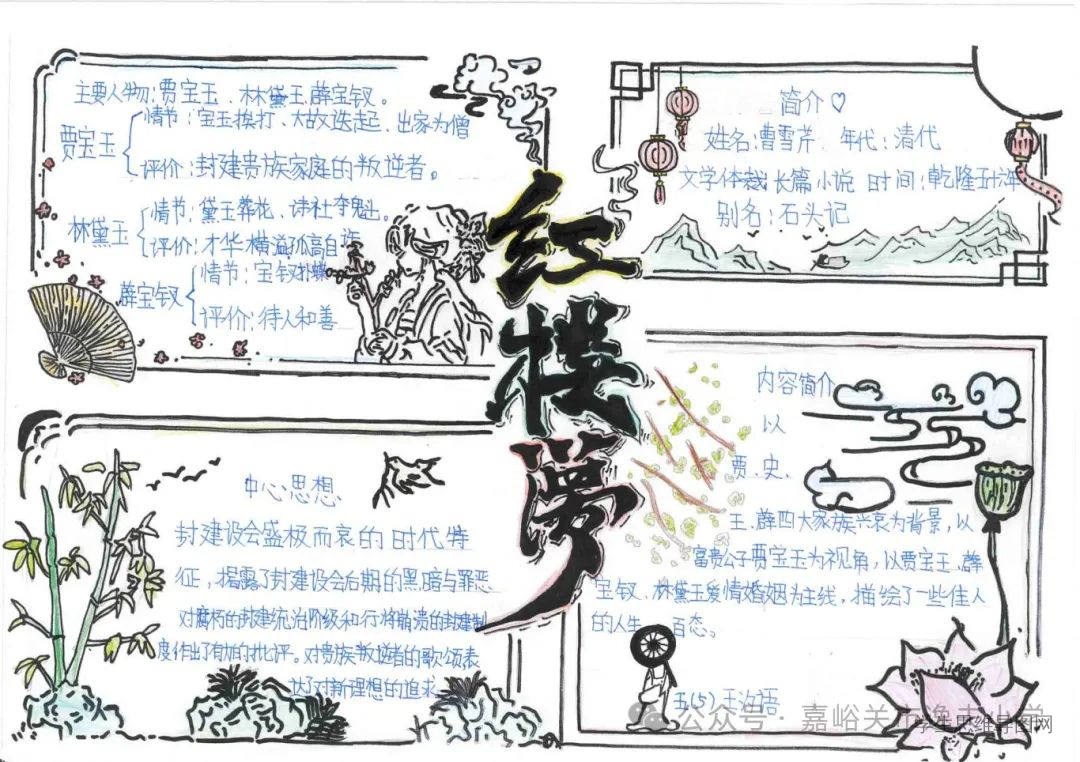 主要人物:贾宝玉、林黛玉、薛宝钗。
贾宝玉
情节:宝玉挨打、大故迭起、出家为僧
评价:封建贵族家庭的叛逆者。
林黛玉
情节:黛玉葬花、诗社夺魁。
评价:才华横溢孤高自许
薛宝钗
情节:宝钗扑蝶
评价:待人和善
红楼梦
简介♡
姓名:曹雪芹 年代:清代
文学体裁 长篇小说 时间:乾隆五十六年
别名:石头记
中心思想
封建设会盛极而哀的时代特
征,揭露了封建设会后期的黑暗与罪恶
对腐朽的封建统治阶级和行将崩溃的封建制
度作出了有力的批评。对贵族叛逆者的歌颂表
达了对新理想的追求
内容简介
以
贾、史、
王、薛四大家族兴哀为背景,以
富贵公子贾宝玉为视角,以贾宝玉、薛
宝钗、林黛玉爱情婚姻为主线,描绘了一些佳人
的人生百态。
五(5)王汝语
公众号·嘉峪关市逸夫小学
学生思维导图网